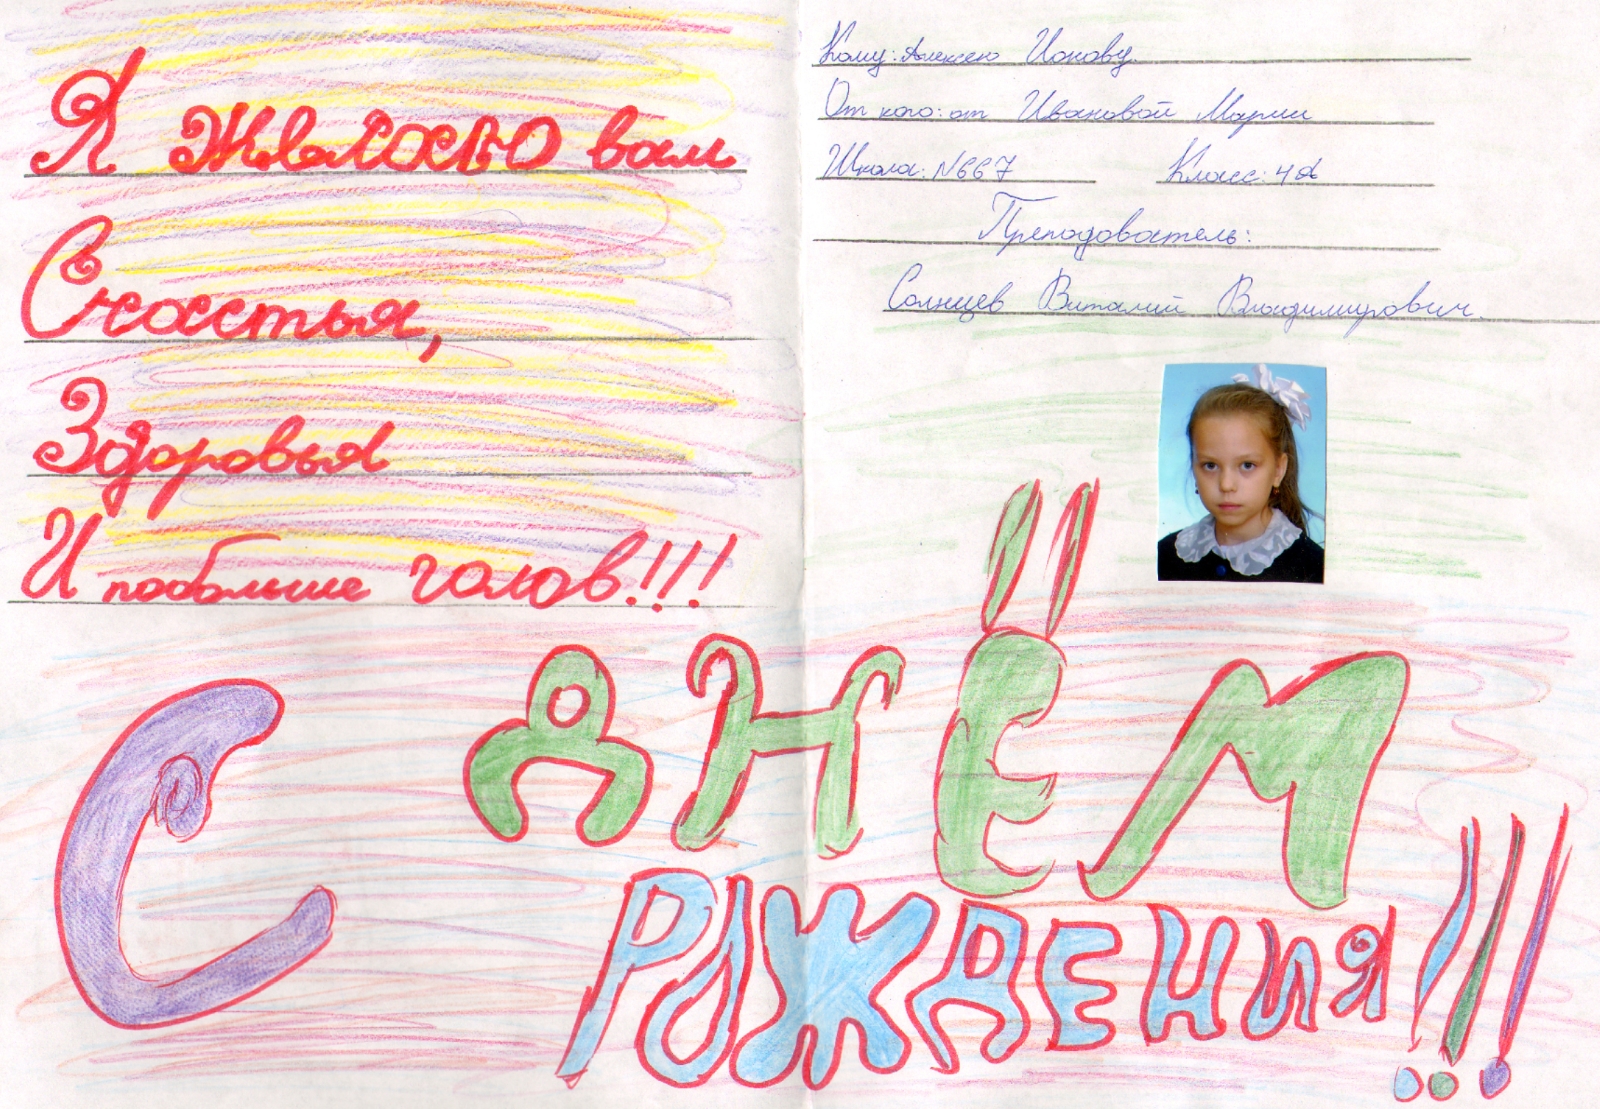 Я желаю вам
Счастья,
Здоровья
И побольше голов!!!
Кому: Алексею Ионову.
От кого: от Ивановой Марии
Школа: №667 Класс: 4А
Преподователь:
Солнцев Виталий Владимирович.
С ДНЁМ
РОЖДЕНИЯ!!!